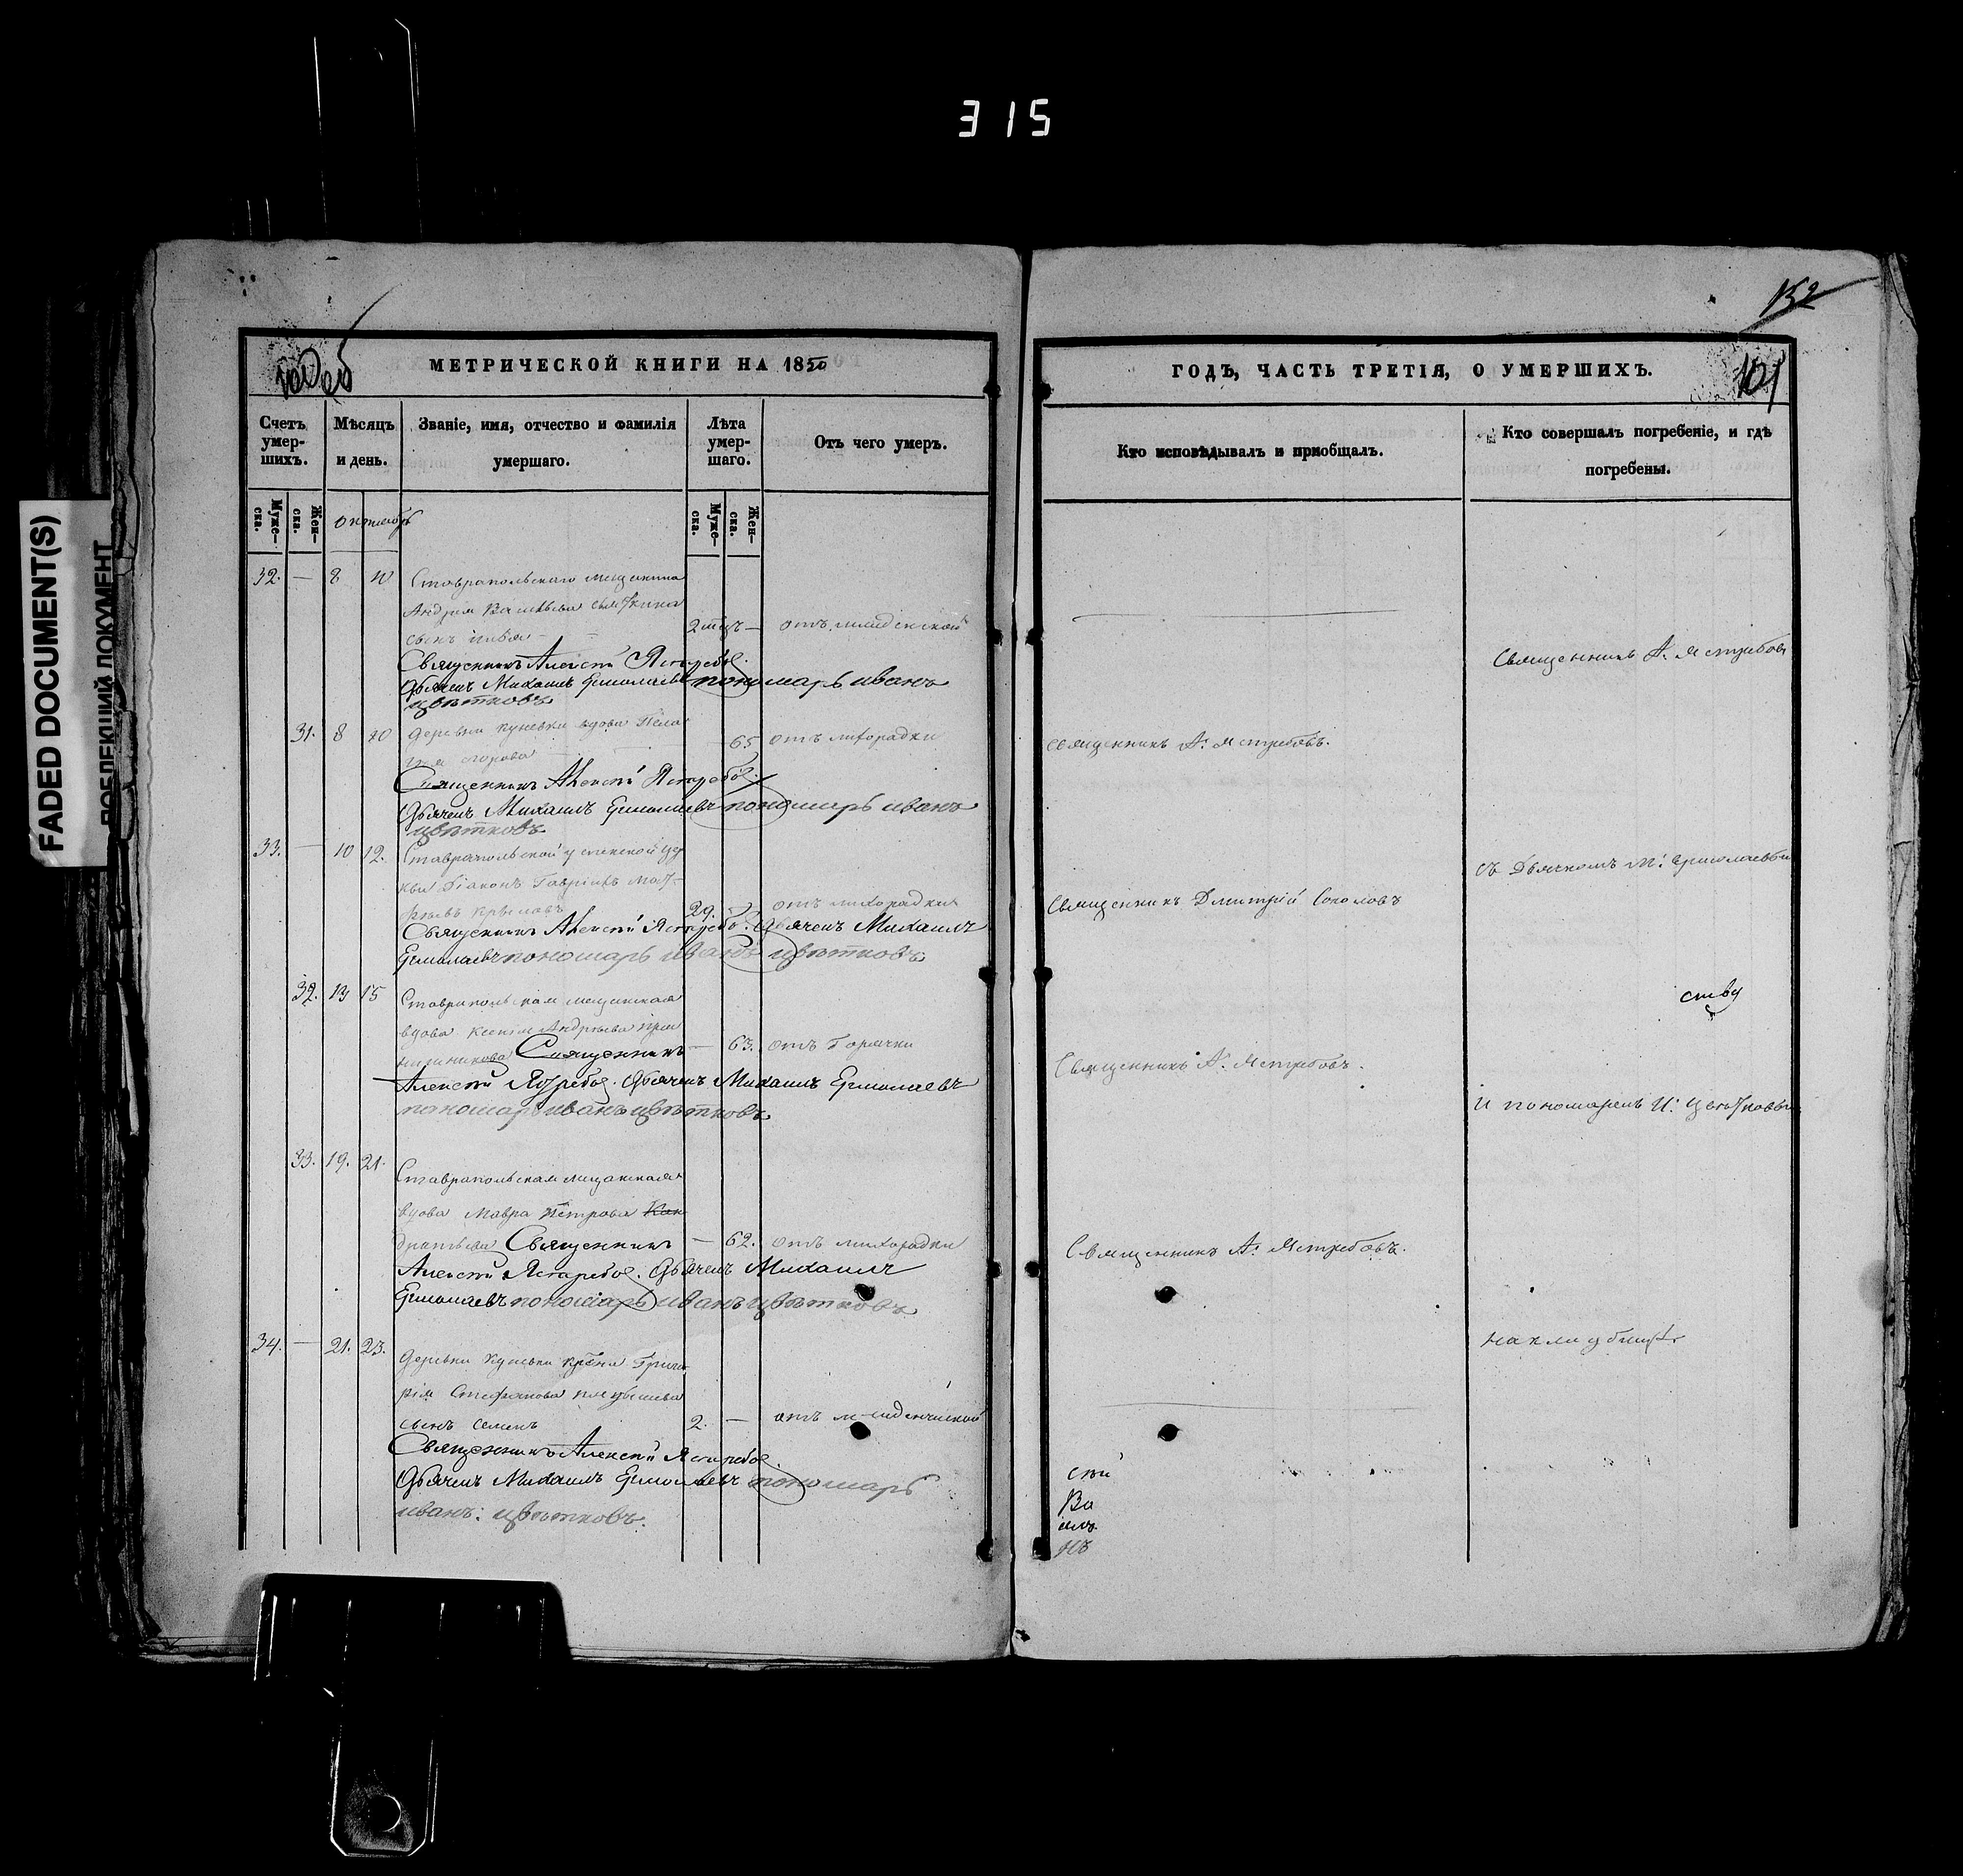 315
FADED DOCUMENT(S)
ПОБЛЕКШИЙ ДОКУМЕНТ
152
МЕТРИЧЕСКОЙ КНИГИ НА 1850
ГОДЪ, ЧАСТЬ ТРЕТІЯ, О УМЕРШИХЪ.
101
Счетъ умер-
шихъ.
Мѣсяцъ
и день.
Званіе, имя, отчество и фамилія
умершаго.
Лѣта
умер-
шаго.
Отъ чего умеръ.
Кто исповѣдывалъ и пріобщалъ.
Кто совершалъ погребеніе, и гдѣ
погребены.
Муже-
ска.
Жен-
ска.
октябрь
Муже-
ска.
Жен-
ска.
32. — 8 10 Ставропольскаго мещанина
Андрея Васильева
сынъ 2 — отъ младенческой
Священникъ А. Ястребовъ
Священникъ Алексѣй Ястребовъ.
Дьячекъ Михаилъ Ермолаевъ пономарь иванъ
цвѣтковъ
31. 8 10 деревни кунеевки вдова Пела-
гея 65 отъ лихорадки
Священникъ А. Ястребовъ.
Священникъ Алексѣй Ястребовъ.
Дьячекъ Михаилъ Ермолаевъ пономарь иванъ
цвѣтковъ
33. — 10 12. Ставропольской успенской цер
кви Діаконъ Гавріилъ Мат-
фѣевъ Крыловъ 29. — отъ лихорадки
Священникъ Дмитрій Соколовъ
съ Дьячкомъ М. Ермолаевым
Священникъ Алексѣй Ястребовъ. Дьячекъ Михаилъ
Ермолаевъ пономарь иванъ цвѣтковъ
32. 13 15 Ставропольская мещанская
вдова Ксенія Андреева
Священникъ — 63. отъ Горячки
Священникъ А. Ястребовъ.
Алексѣй Ястребовъ. Дьячекъ Михаилъ Ермолаевъ
пономарь иванъ цвѣтковъ
и пономаремъ И. Цвѣтковым
33. 19. 21. Ставропольская мещанская
вдова Мавра Петрова Кон
дратьева Священникъ — 62. отъ лихорадки
Священникъ А. Ястребовъ.
Алексѣй Ястребовъ. Дьячекъ Михаилъ
Ермолаевъ пономарь иванъ цвѣтковъ
34. — 21. 23. деревни кунеевки Григо
рія Стефанова
сынъ Семенъ 2. — отъ младенческой
на кладбищѣ
Священникъ Алексѣй Ястребовъ.
Дьячекъ Михаилъ Ермолаевъ пономарь
иванъ: цвѣтковъ.